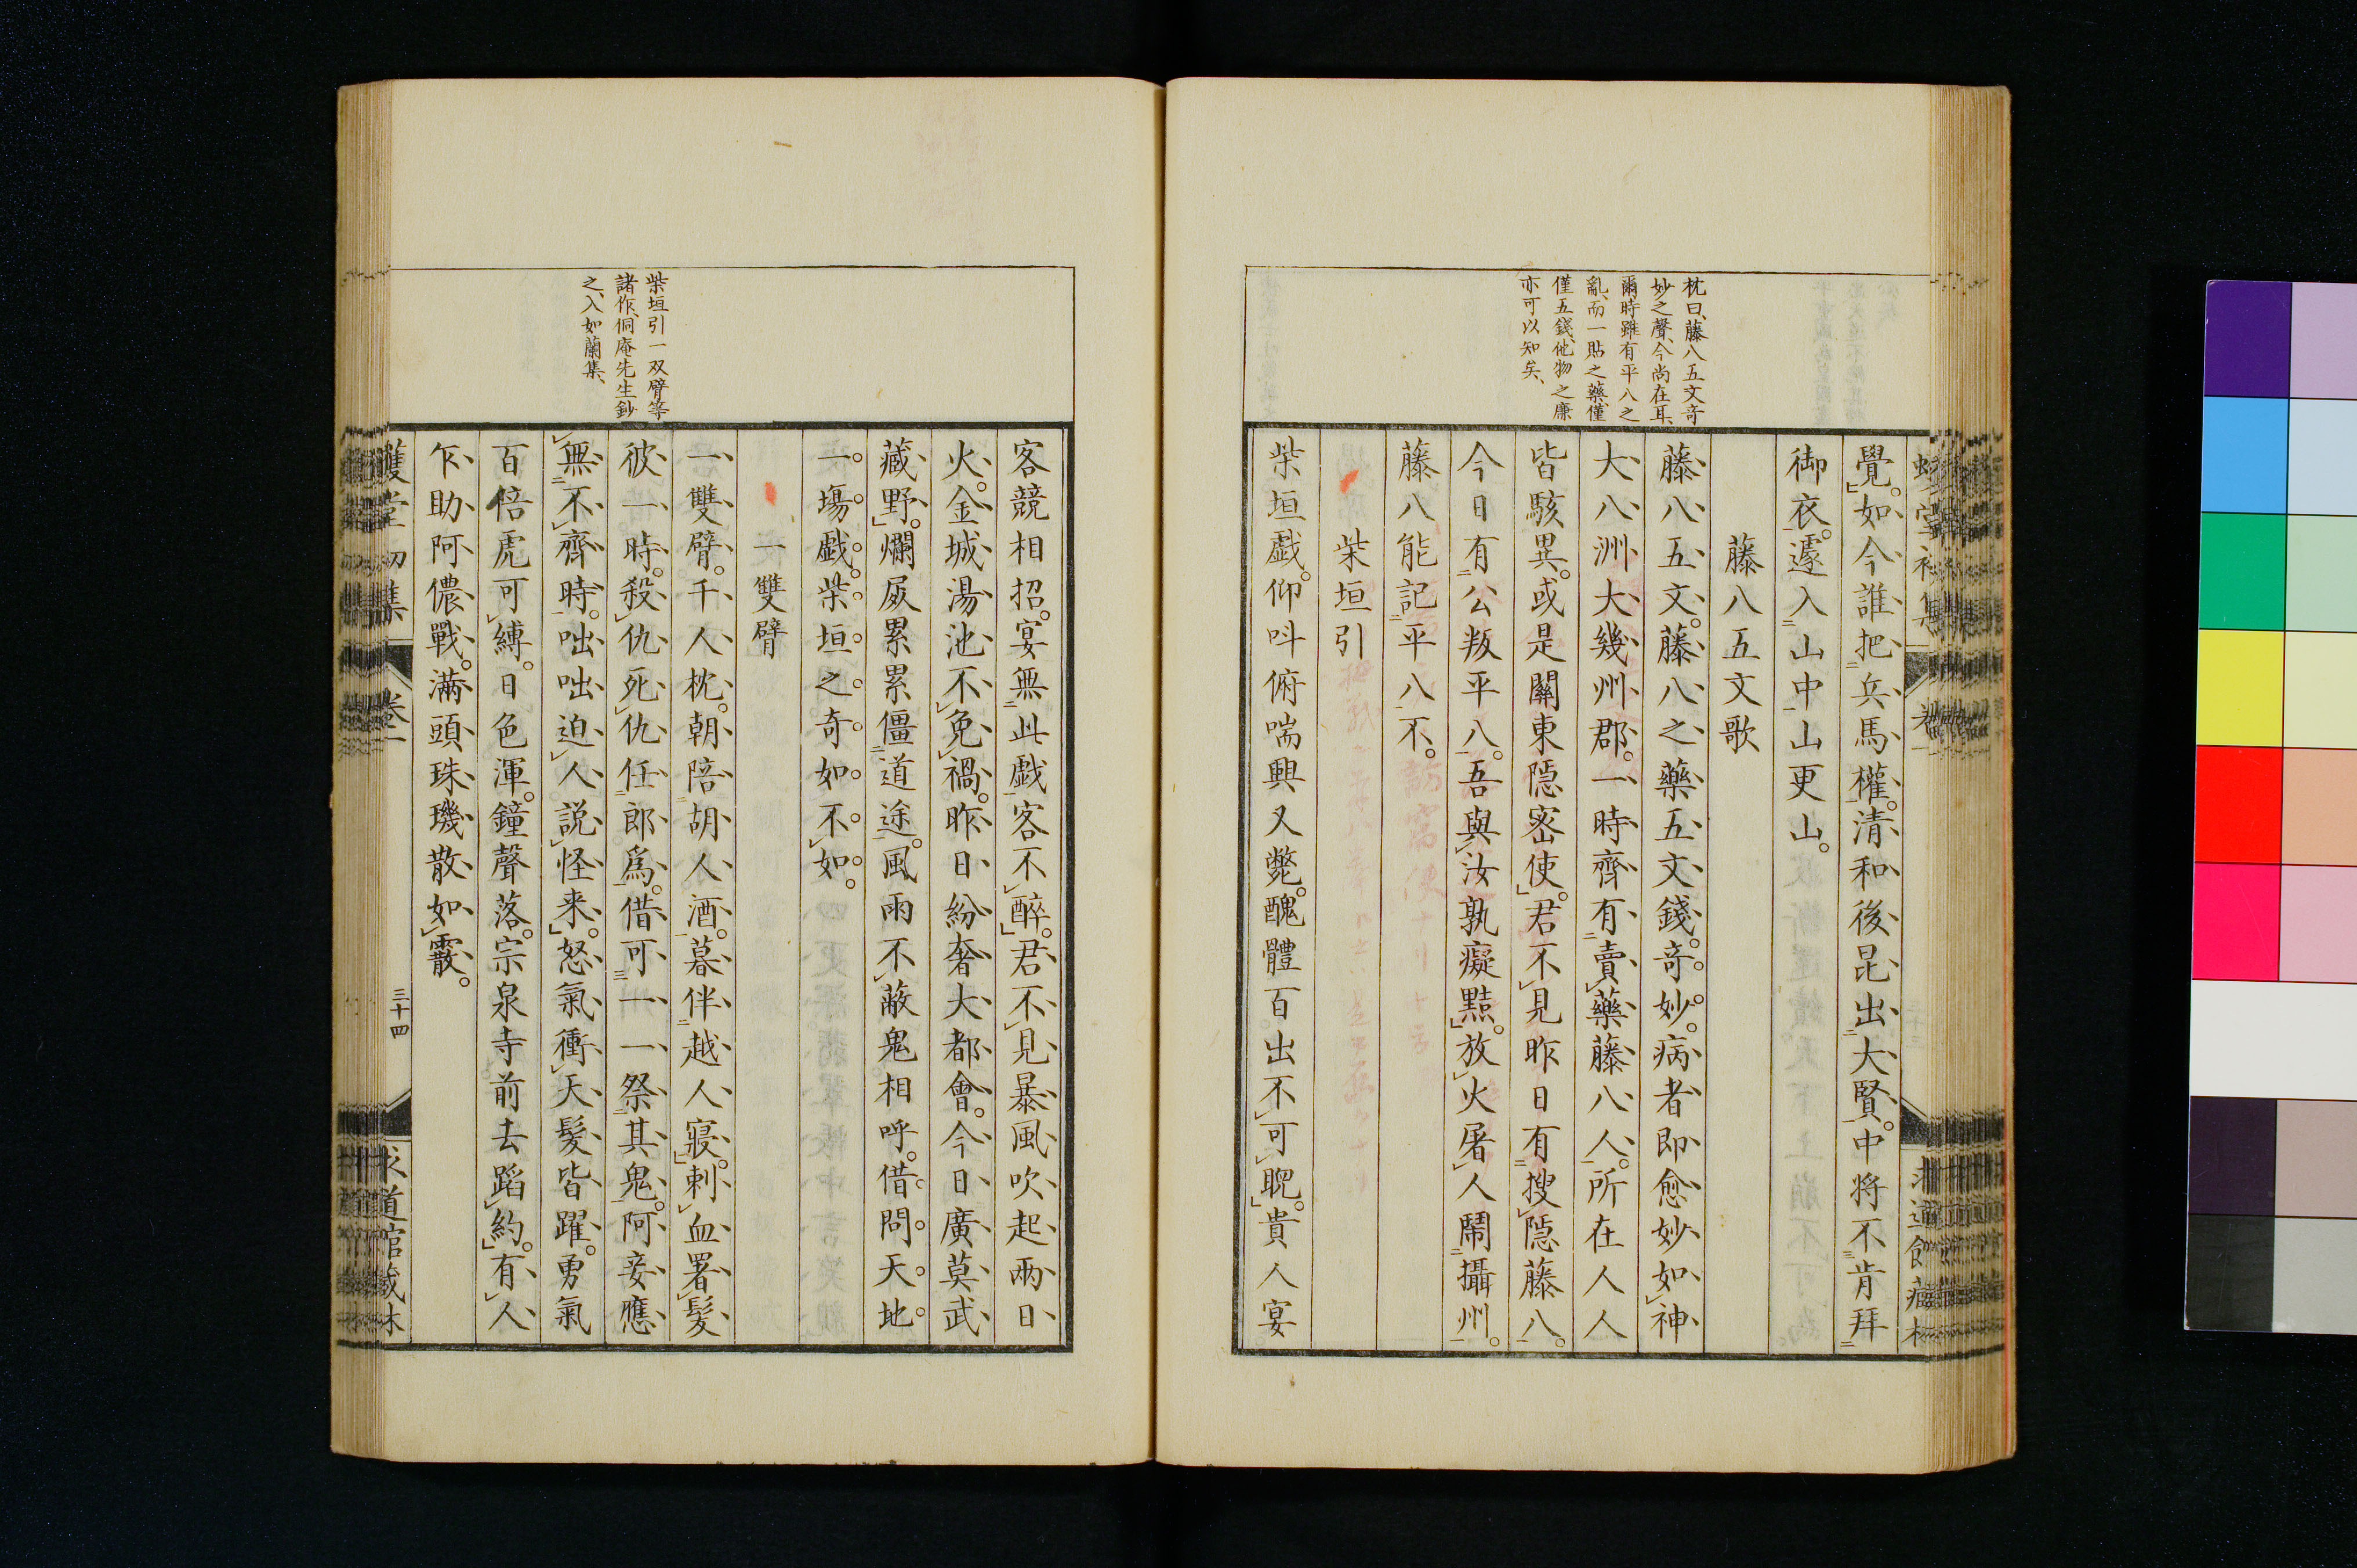 枕曰、藤八五文奇
妙之聲、今尚在耳、
爾時雖有平八之
亂、而一貼之藥、僅
僅五錢、他物之廉
亦可以知矣、
覺。如今誰把二兵馬權一。清和後昆出二大賢一。中将不三肯拜二
御衣一。遽入二山中一山更山。
藤八五文歌
藤八五文。藤八之藥五文錢。奇。妙。病者即愈妙如神
大八洲大幾州郡。一時齊有二賣藥藤八人一。所在人人
皆駭異。或是關東隱密使。君不見昨日有二搜隱藤八一。
今日有二公叛平八一。吾與汝孰癡黠。放火屠人鬧二攝州一。
藤八能記二平八一不。
柴垣引
柴垣戯。仰呌俯喘興又斃。醜體百出不可聦。貴人宴
柴垣引一双臂等
諸作、侗庵先生鈔
之、入如蘭集、
客競相招。宴無二此戯一客不醉。君不見暴風吹起兩日
火。金城湯池不免禍。昨日紛奢大都會。今日廣莫武
藏野。爛㞕累累僵二道途一。風雨不蔽鬼相呼。借問天地
一塲戯。柴垣之奇如不如。
一雙臂
一雙臂。千人枕。朝陪二胡人酒一。暮伴二越人寢。刺血署髮
彼一時。殺仇死仇任二郎爲一。借可三一一祭二其鬼一。阿妾應
無二不齊時一。咄咄迫人説怪来。怒氣衝天髮皆躍。勇氣
百倍虎可縛。日色渾。鐘聲落。宗泉寺前去蹈約。有人
乍助阿儂戰。滿頭珠璣散如霰。
卷二
三十四
求道館藏